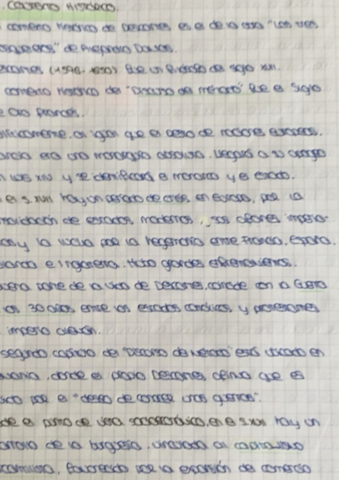 CONTEXTO HISTÓRICO.
contexto histórico de Descartes es el de la obra "Los tres
mosqueteros" de Alejandro Dumas.
Descartes (1596-1650) fue un filósofo del siglo XVII.
contexto histórico del "Discurso del método" fue el Siglo
de Oro francés.
igual que el resto de naciones europeas,
era una monarquía absoluta. llegará a su apogeo
Luis XIV y se identificará el monarca y el estado.
el s. XVII hay un periodo de crisis en Europa, por la
consolidación de estados modernos, sus
y la lucha por la hegemonía entre Francia, España,
e Inglaterra. Hubo grandes enfrentamientos.
parte de la vida de Descartes, coincide con la Guerra
los 30 años, entre los estados católicos y protestantes
imperio alemán.
segundo capítulo del "Discurso del método" está ubicado en
donde el propio Descartes afirma que es
por el "deseo de conocer unas guerras".
de el punto de vista socioeconómico, en el s. XVII hay un
de la burguesía, vinculada al capitalismo
favorecido por la expansión del comercio